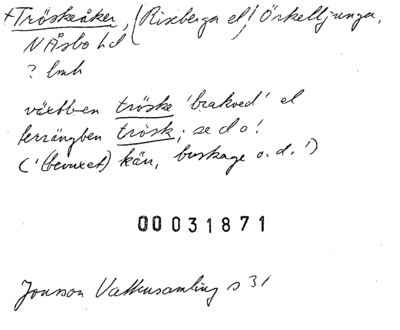 +Tröskeåker, (Riseberga el! Örkelljunga,
N Åsbo hd
? lmh
växtben tröske 'brakved' el
terrängben trösk; se d o!
('(bevuxet) kärr, buskage o. d.')
00031871
Jonsson Vattensamling s 31